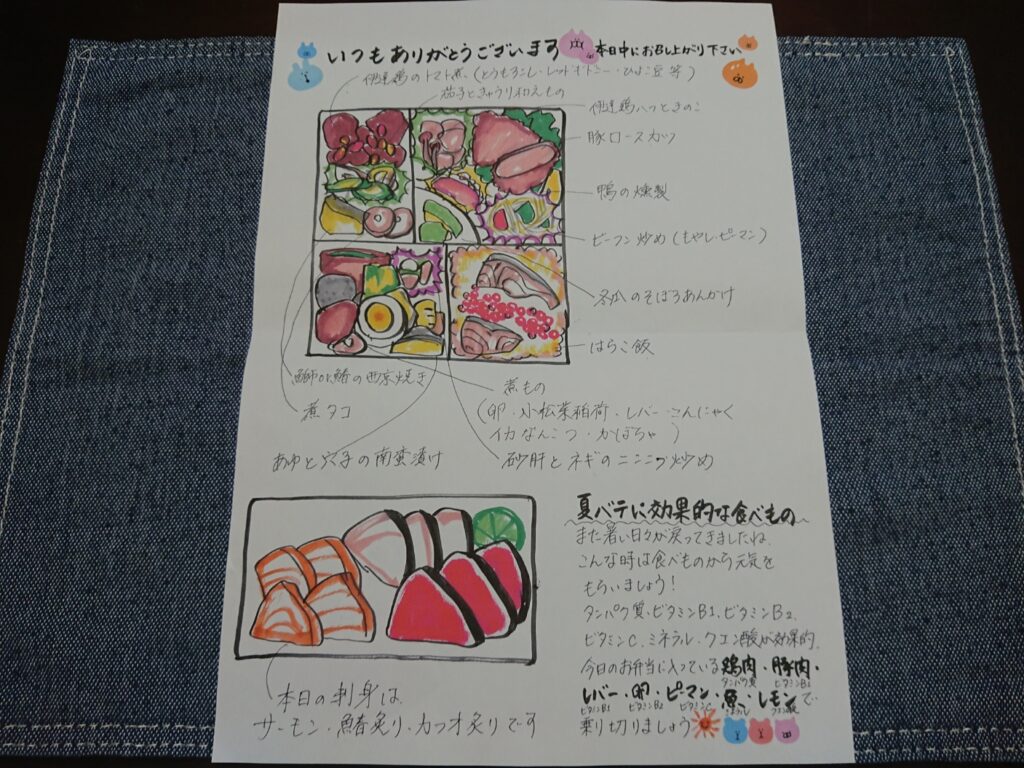 いつもありがとうございます
本日中にお召し上がり下さい
伊達鶏のトマト煮（とうもろこし・レッドキドニー・ひよこ豆 等）
茄子ときゅうり和えもの
伊達鶏ハツときのこ
豚ロースカツ
鴨の燻製
ビーフン炒め（もやし・ピーマン）
冬瓜のそぼろあんかけ
はらこ飯
鰤or鰆の西京焼き
煮タコ
あゆと穴子の南蛮漬け
煮もの
（卵・小松菜稲荷・レバー・こんにゃく
イカなんこつ・かぼちゃ）
砂肝とネギのニンニク炒め
本日の刺身は、
サーモン・鰆炙り・カツオ炙りです
夏バテに効果的な食べもの
また暑い日々が戻ってきましたね、
こんな時は食べものから元気を
もらいましょう！
タンパク質、ビタミンB1、ビタミンB2、
ビタミンC、ミネラル、クエン酸が効果的。
今日のお弁当に入っている鶏肉・豚肉・
タンパク質 ビタミンB1
レバー・卵・ピーマン・魚・レモンで
ビタミンB1 ビタミンB2 ビタミンC ミネラル クエン酸
乗り切りましょう